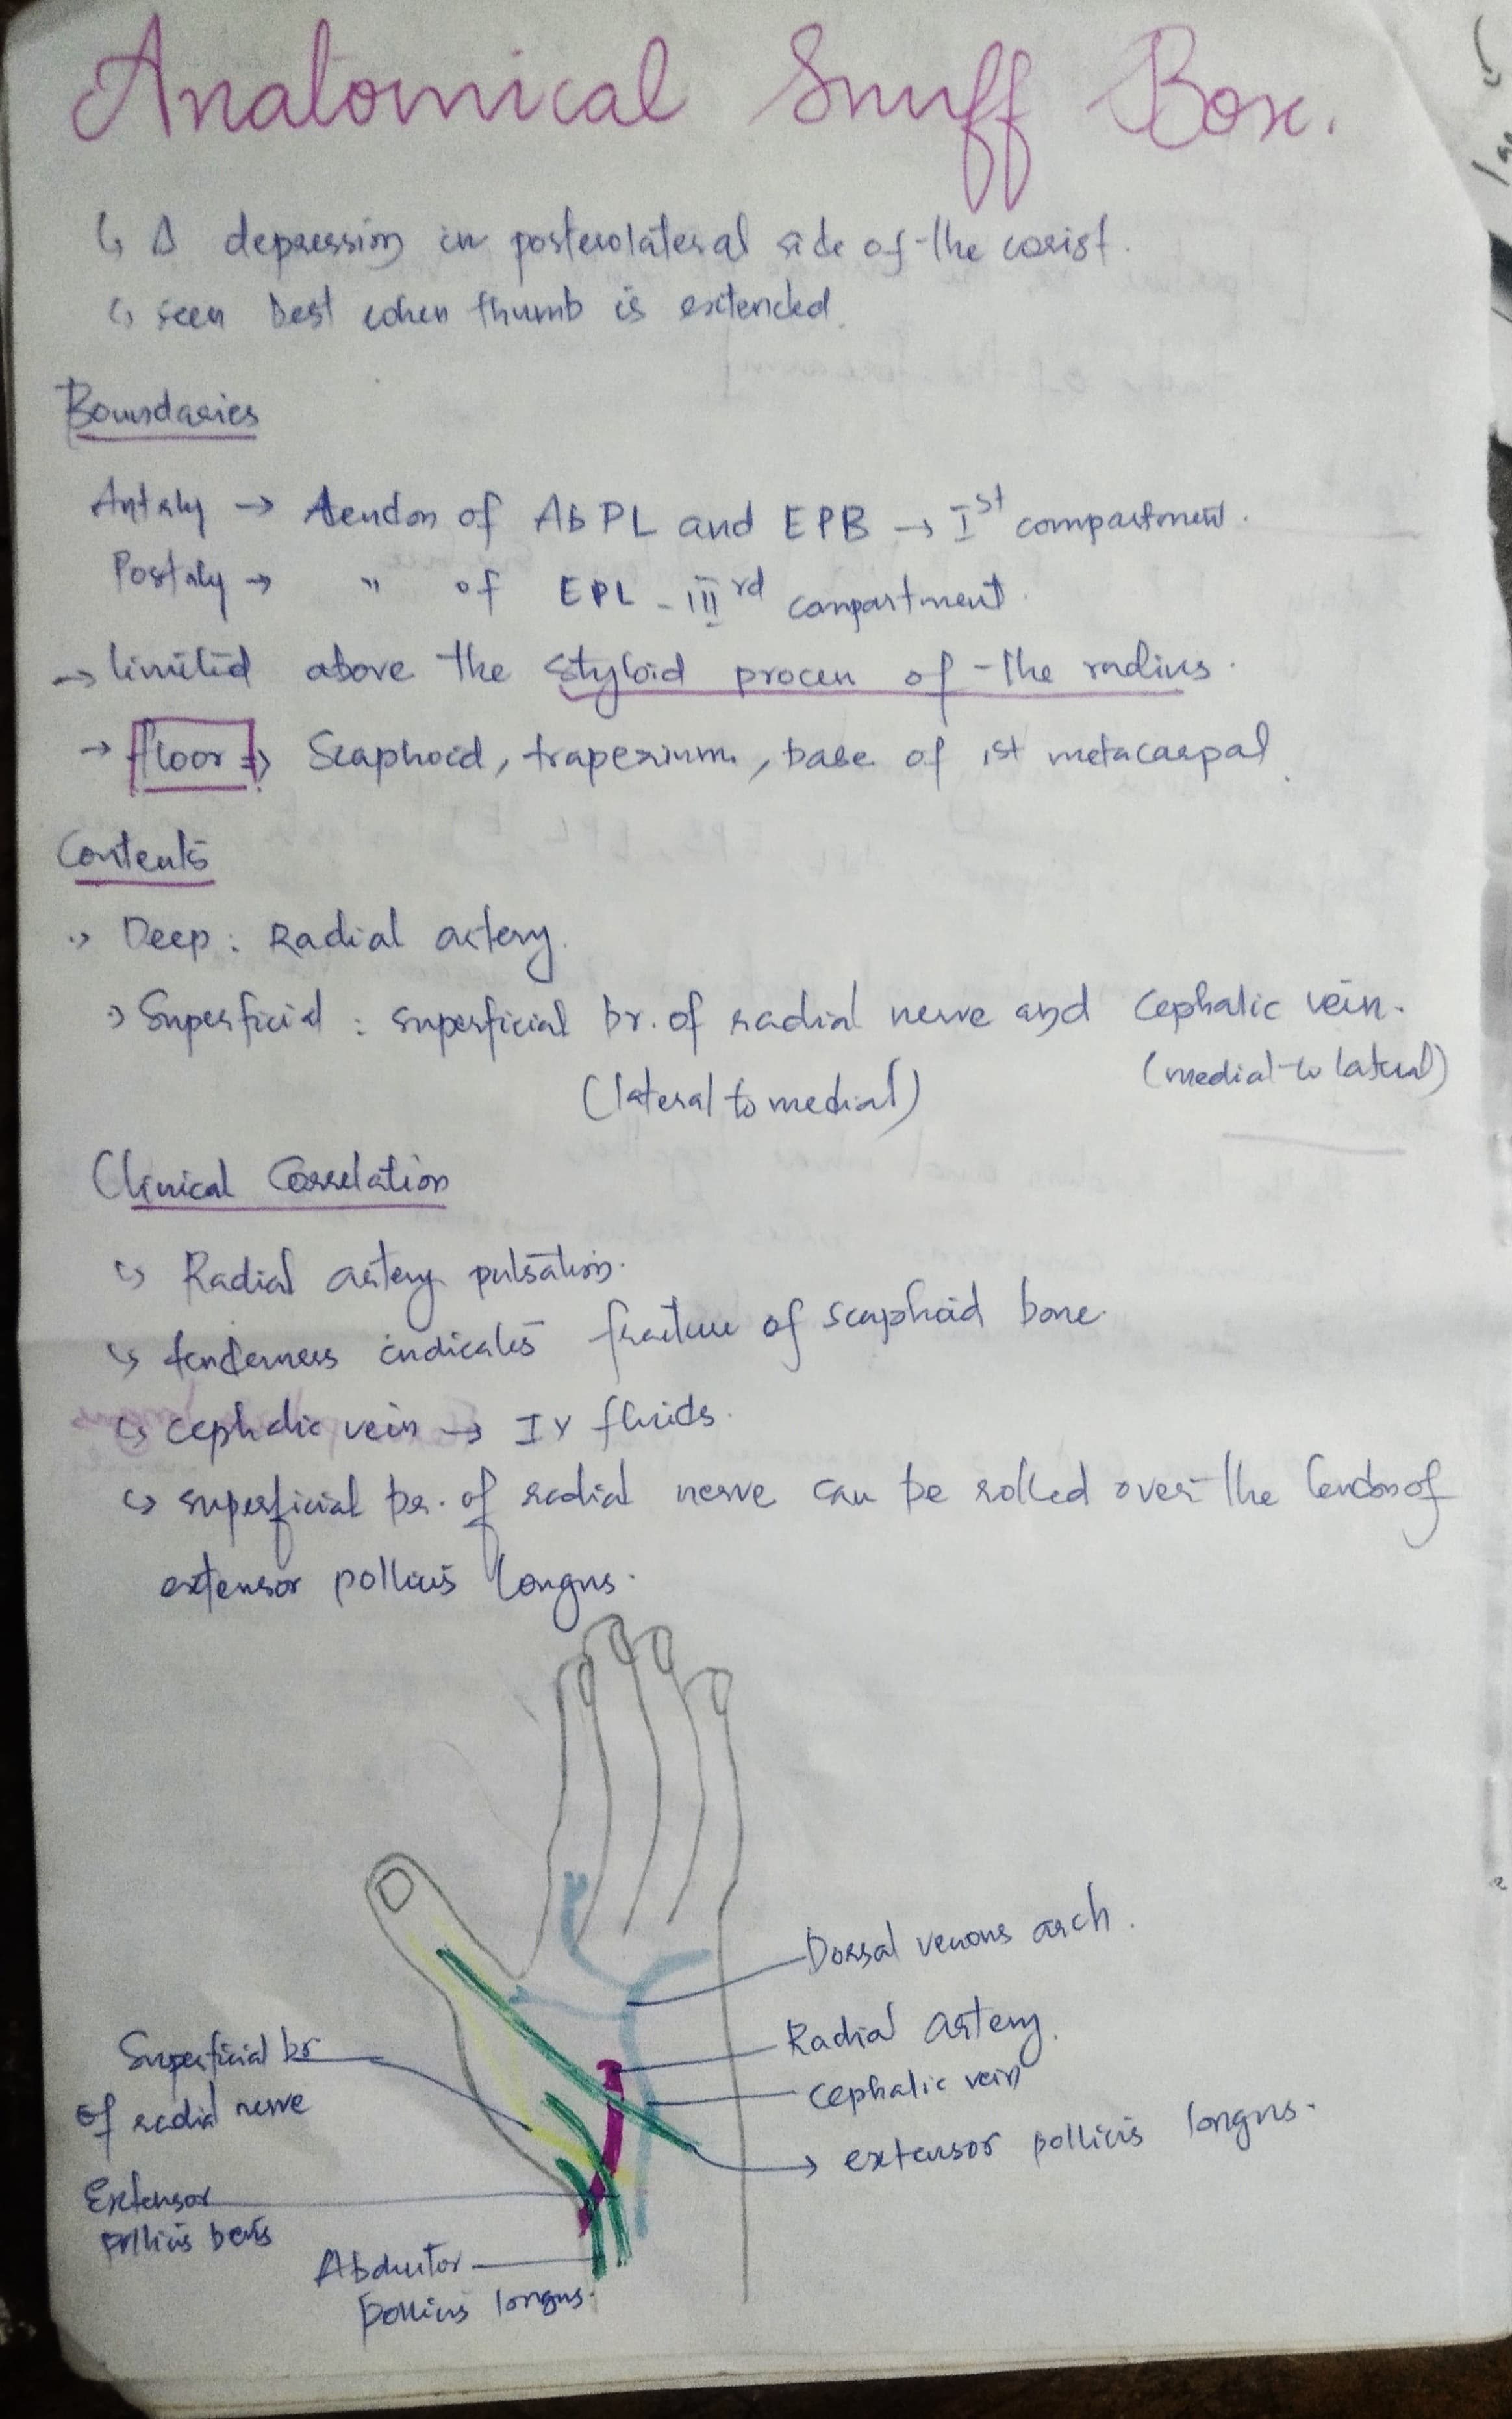 Anatomical Snuff Box.
↳ Δ depression in posterolateral side of the wrist.
↳ seen best when thumb is extended.
Boundaries
Antrly → tendon of AbPL and EPB → Ist compartment.
Postrly → " of EPL - IIIrd compartment.
→ limited above the styloid process of the radius.
→ floor => Scaphoid, trapezium, base of 1st metacarpal.
Contents
Deep : Radial artery.
Superficial : superficial br. of radial nerve and cephalic vein.
(lateral to medial) (medial to lateral)
Clinical Correlation
↳ Radial artery pulsation.
↳ tenderness indicates fracture of scaphoid bone.
↳ cephalic vein → IV fluids.
↳ superficial br. of radial nerve can be rolled over the tendon of
extensor pollicis longus.
Dorsal venous arch.
Radial artery.
cephalic vein
→ extensor pollicis longus.
Superficial br
of radial nerve
Extensor
pollicis bevis
Abductor
pollicis longus.